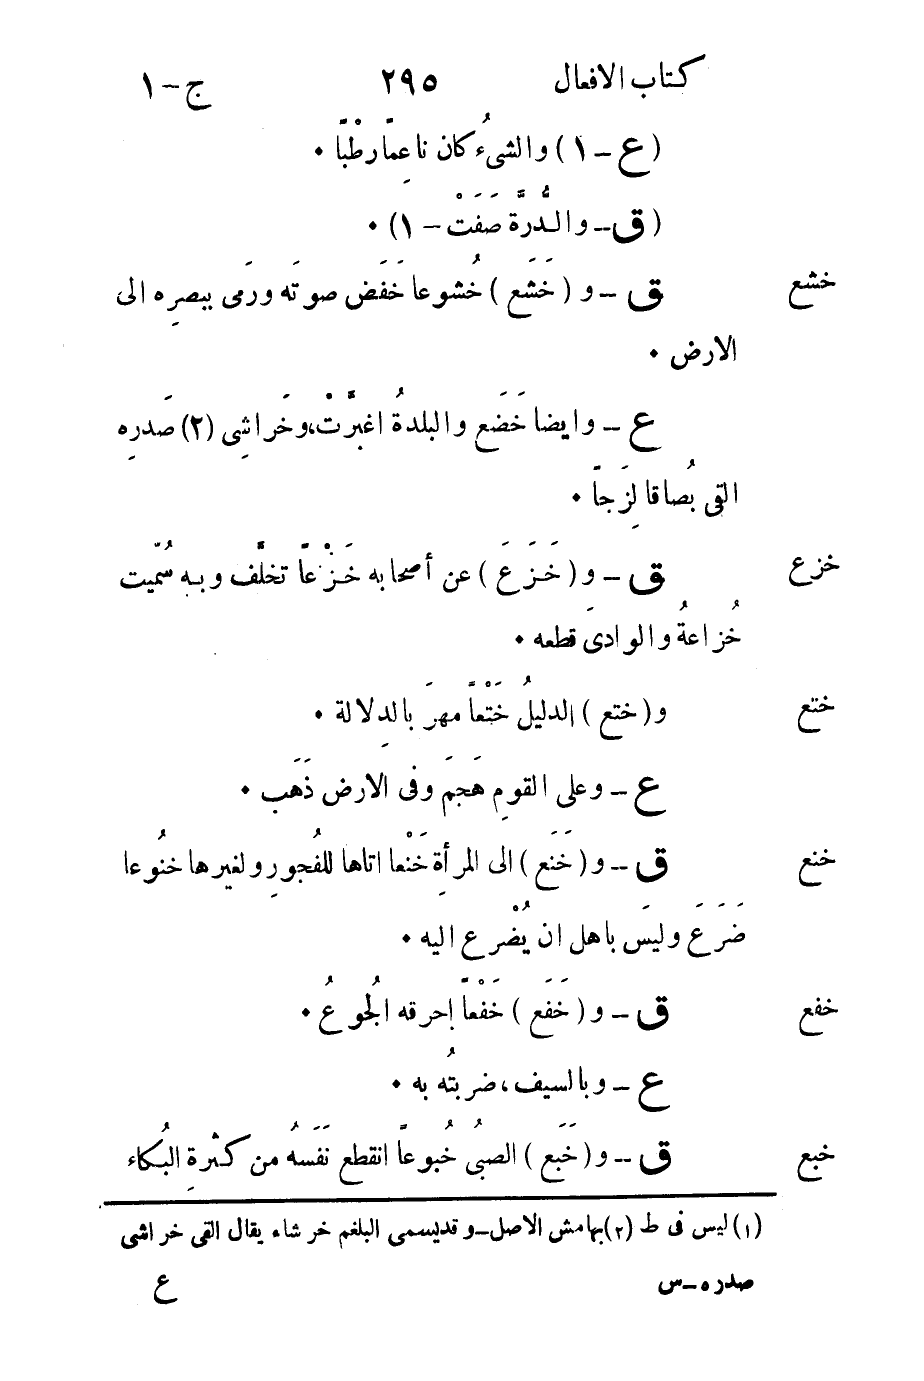 كتاب الافعال ٢٩٥ ج - ١
(ع - ١) والشيءُ كان ناعِمًا رطْبًا •
(ق - والدُّرَّة صَفَتْ - ١) •
خشع ق - و (خَشَع) خُشوعا خَفَض صوتَه ورَمى ببصرِه الى
الارض •
ع - وايضا خَضَع والبلدةُ اغبرَّتْ، وخَراشِى (٢) صَدرِه
القى بُصاقا لزِجاً •
خزع ق - و (خَزَعَ) عن أصحابه خَزْعاً تخلَّف وبه سُمّيت
خُزاعةُ والوادىَ قطعه •
ختع و (ختع) الدليلُ خَتْعاً مهرَ بالدِلالة •
ع - وعلى القومِ هَجَمَ وفى الارض ذَهَب •
خنع ق - و (خَنَع) الى المرأةِ خَنْعا اتاها للفُجورِ ولغيرها خنُوعا
ضَرَعَ وليسَ باهل ان يُضْرع اليه •
خفع ق - و (خَفَع) خَفْعاً إحرقه الجُوعُ •
ع - وبالسيف، ضربتُه به •
خبع ق - و (خَبَع) الصبىُ خُبوعاً انقطع نَفَسَهُ من كثرةِ البُكاء
(١) ليس فى ط (٢) بهامش الاصل - وقديسمى البلغم خرشاء يقال القى خراشى
صدره - س ع